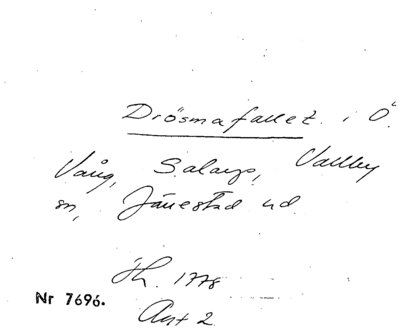 Drösmafallet i Ö.
Vång, Salarps, Vallby
sn, Järrestad hd
Th. 1778
Nr 7696.
Akt 2